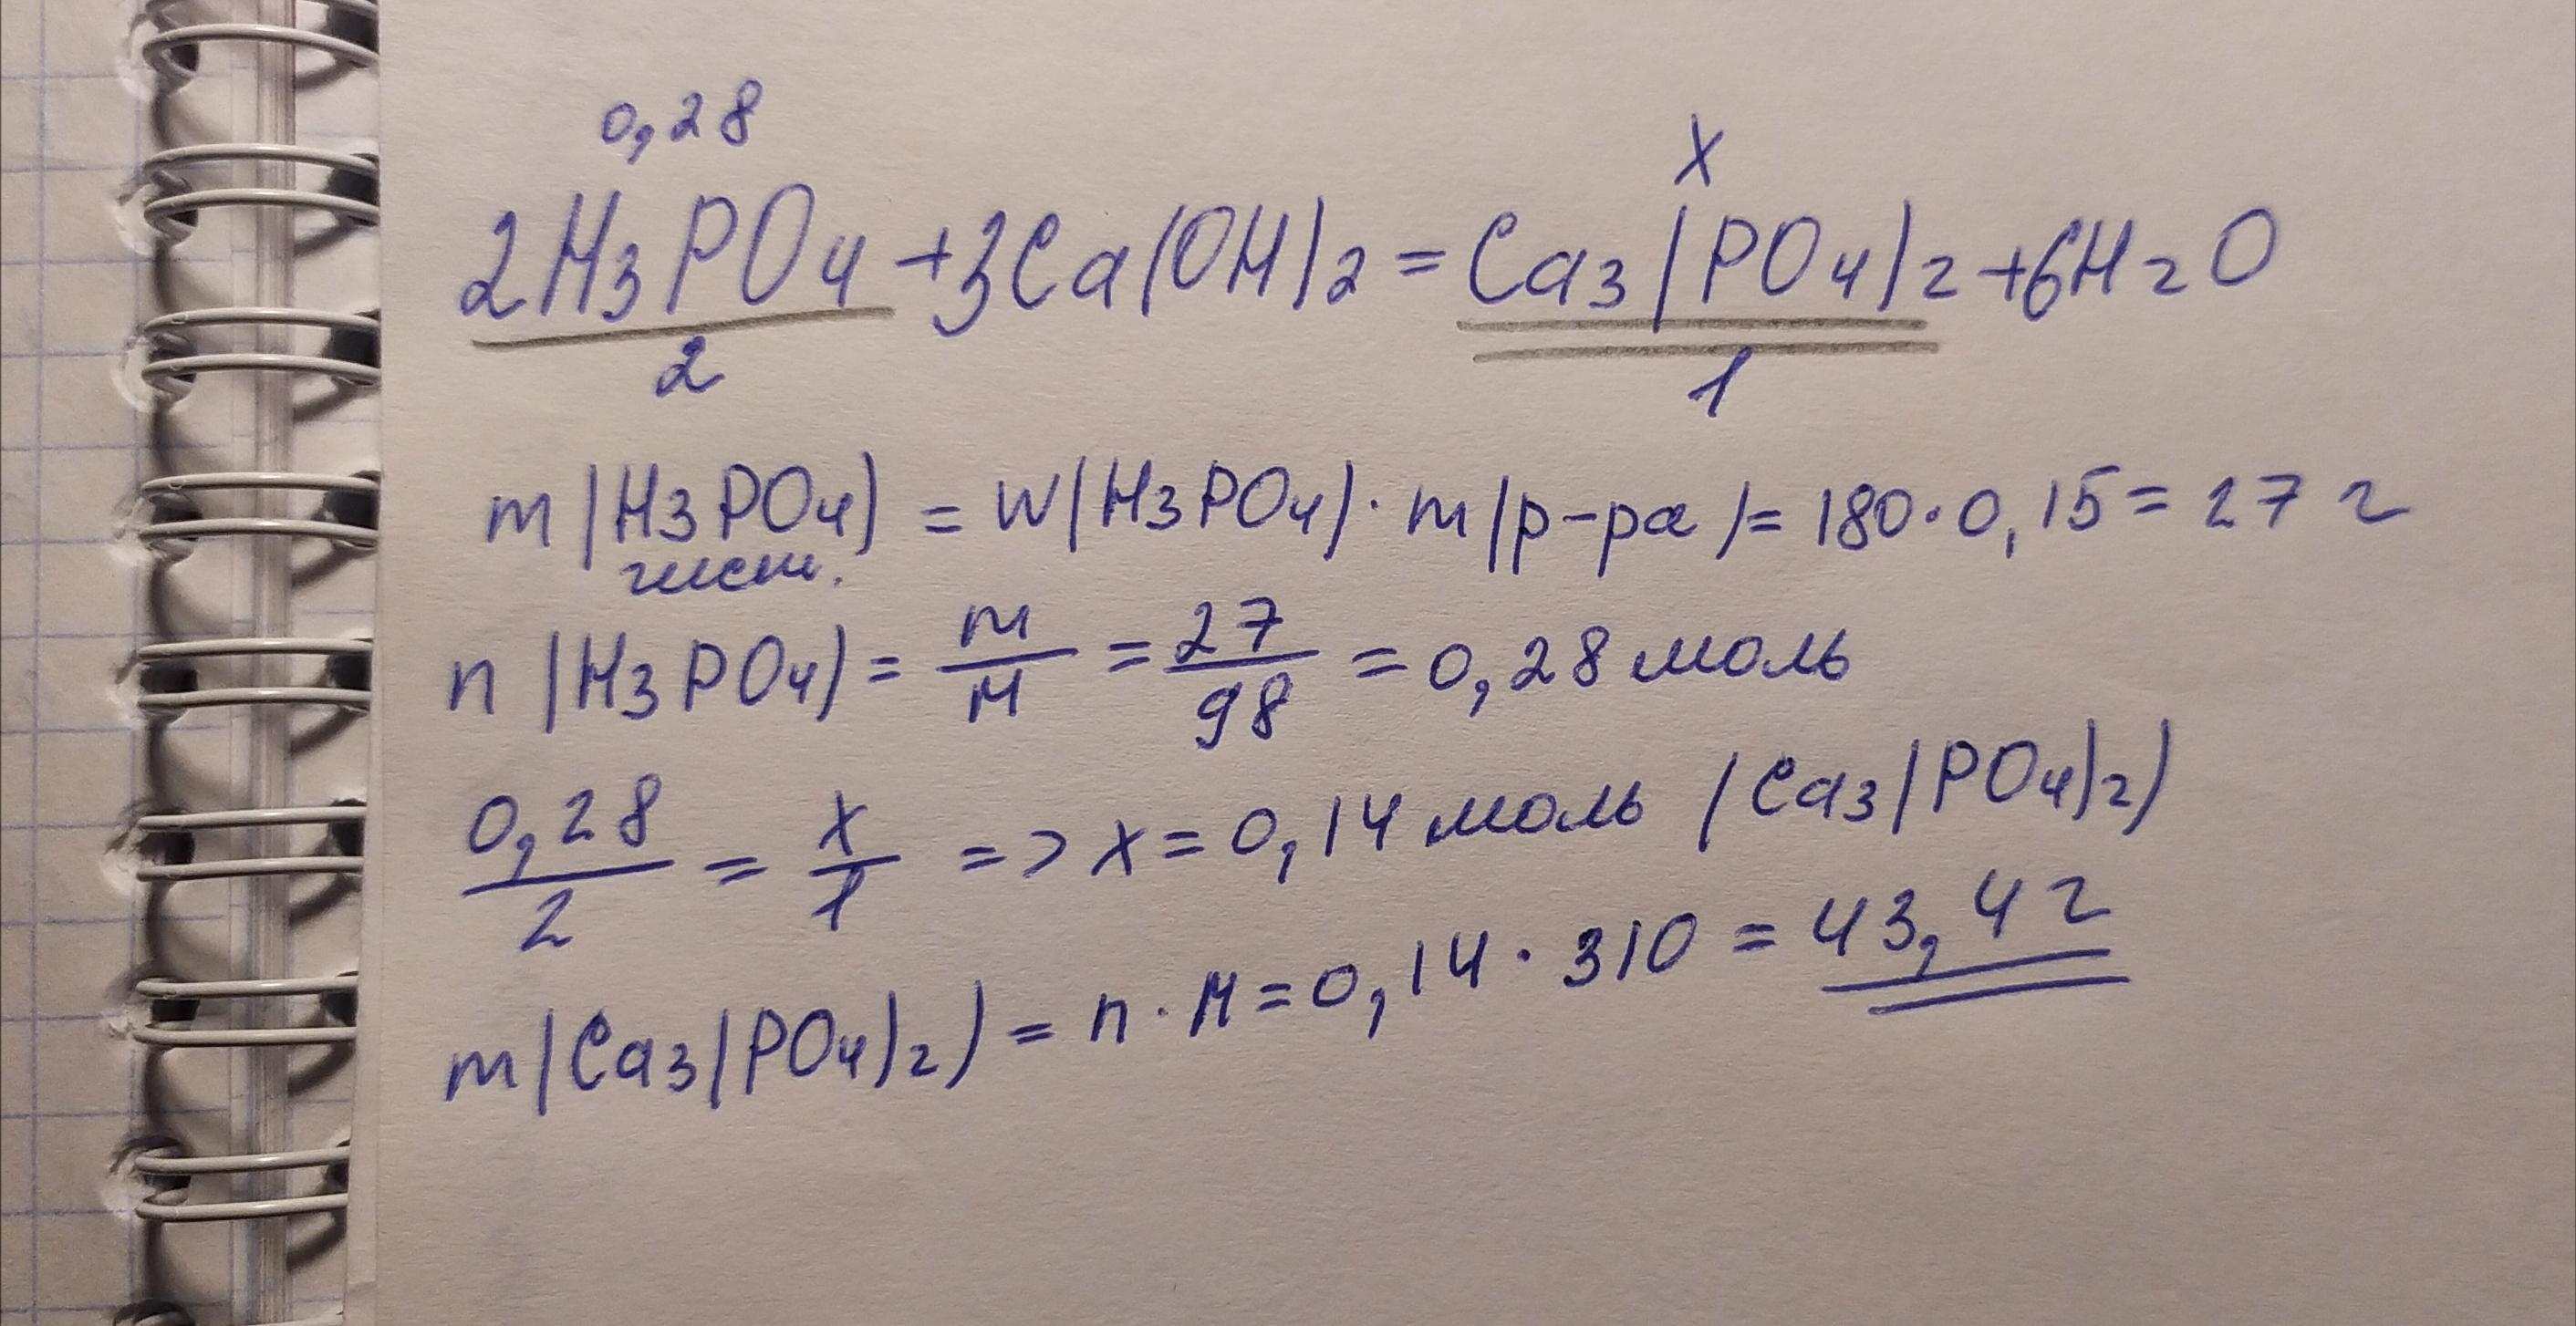 0,28 x
2H3PO4 + 3Ca(OH)2 = Ca3(PO4)2 + 6H2O
2 1
m(H3PO4) = w(H3PO4) · m(р-ра) = 180 · 0,15 = 27 г
чист.
n(H3PO4) = m/M = 27/98 = 0,28 моль
0,28/2 = x/1 => x = 0,14 моль (Ca3(PO4)2)
m(Ca3(PO4)2) = n · M = 0,14 · 310 = 43,4 г